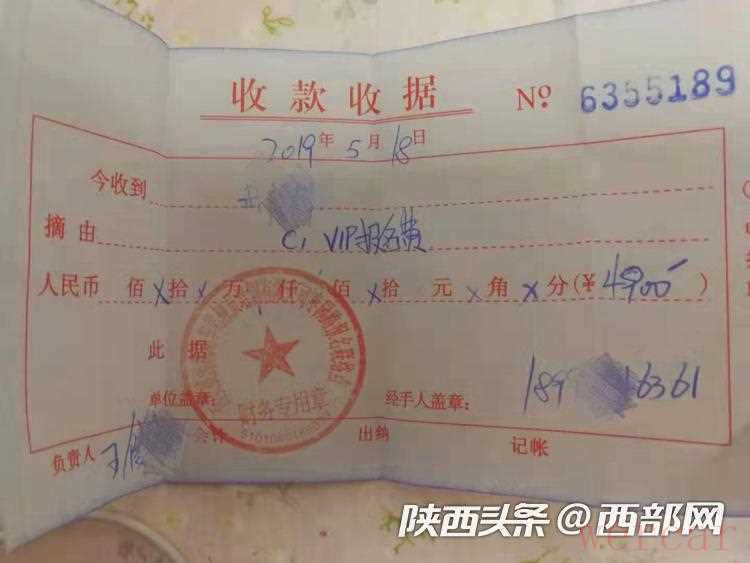 收款收据 № 6355189
2019年5月18日
今收到
摘由 C1 VIP报名费
人民币 佰 x 拾 x 万 仟 佰 x 拾 元 x 角 x 分(¥ 4900 )
此据
财务专用章
单位盖章: 经手人盖章: 189 16361
负责人 王 会计 出纳 记帐
陕西头条@西部网
weicar